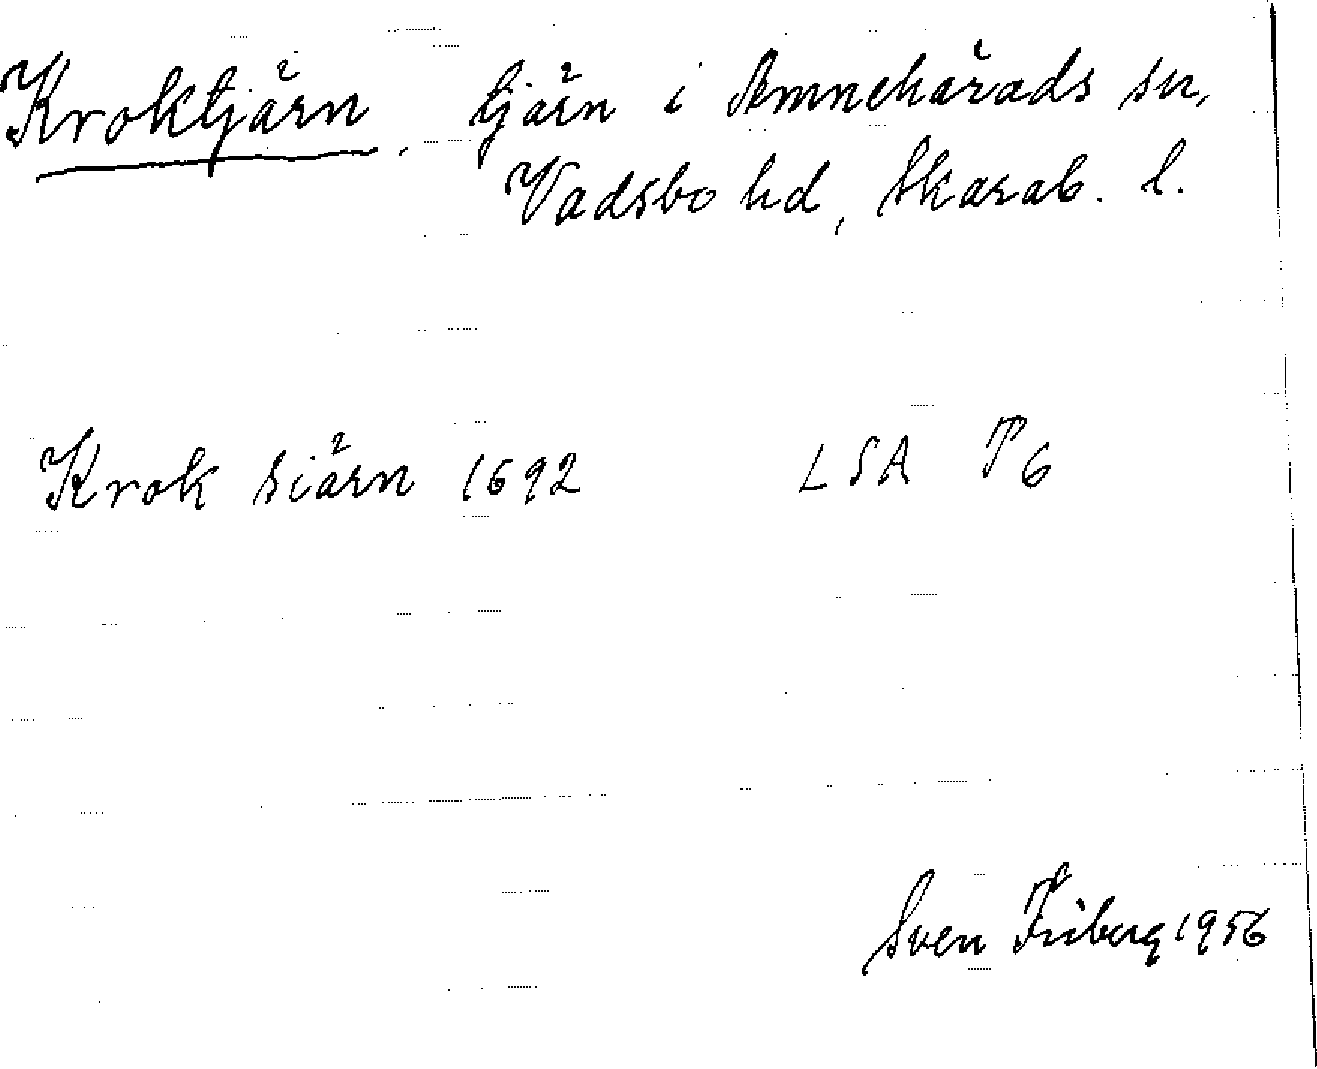 Kroktjärn, tjärn i Amnehärads sn,
Vadsbo hd, Skarab. l.
Krok siärn 1692 LSA P6
Sven Friberg 1956